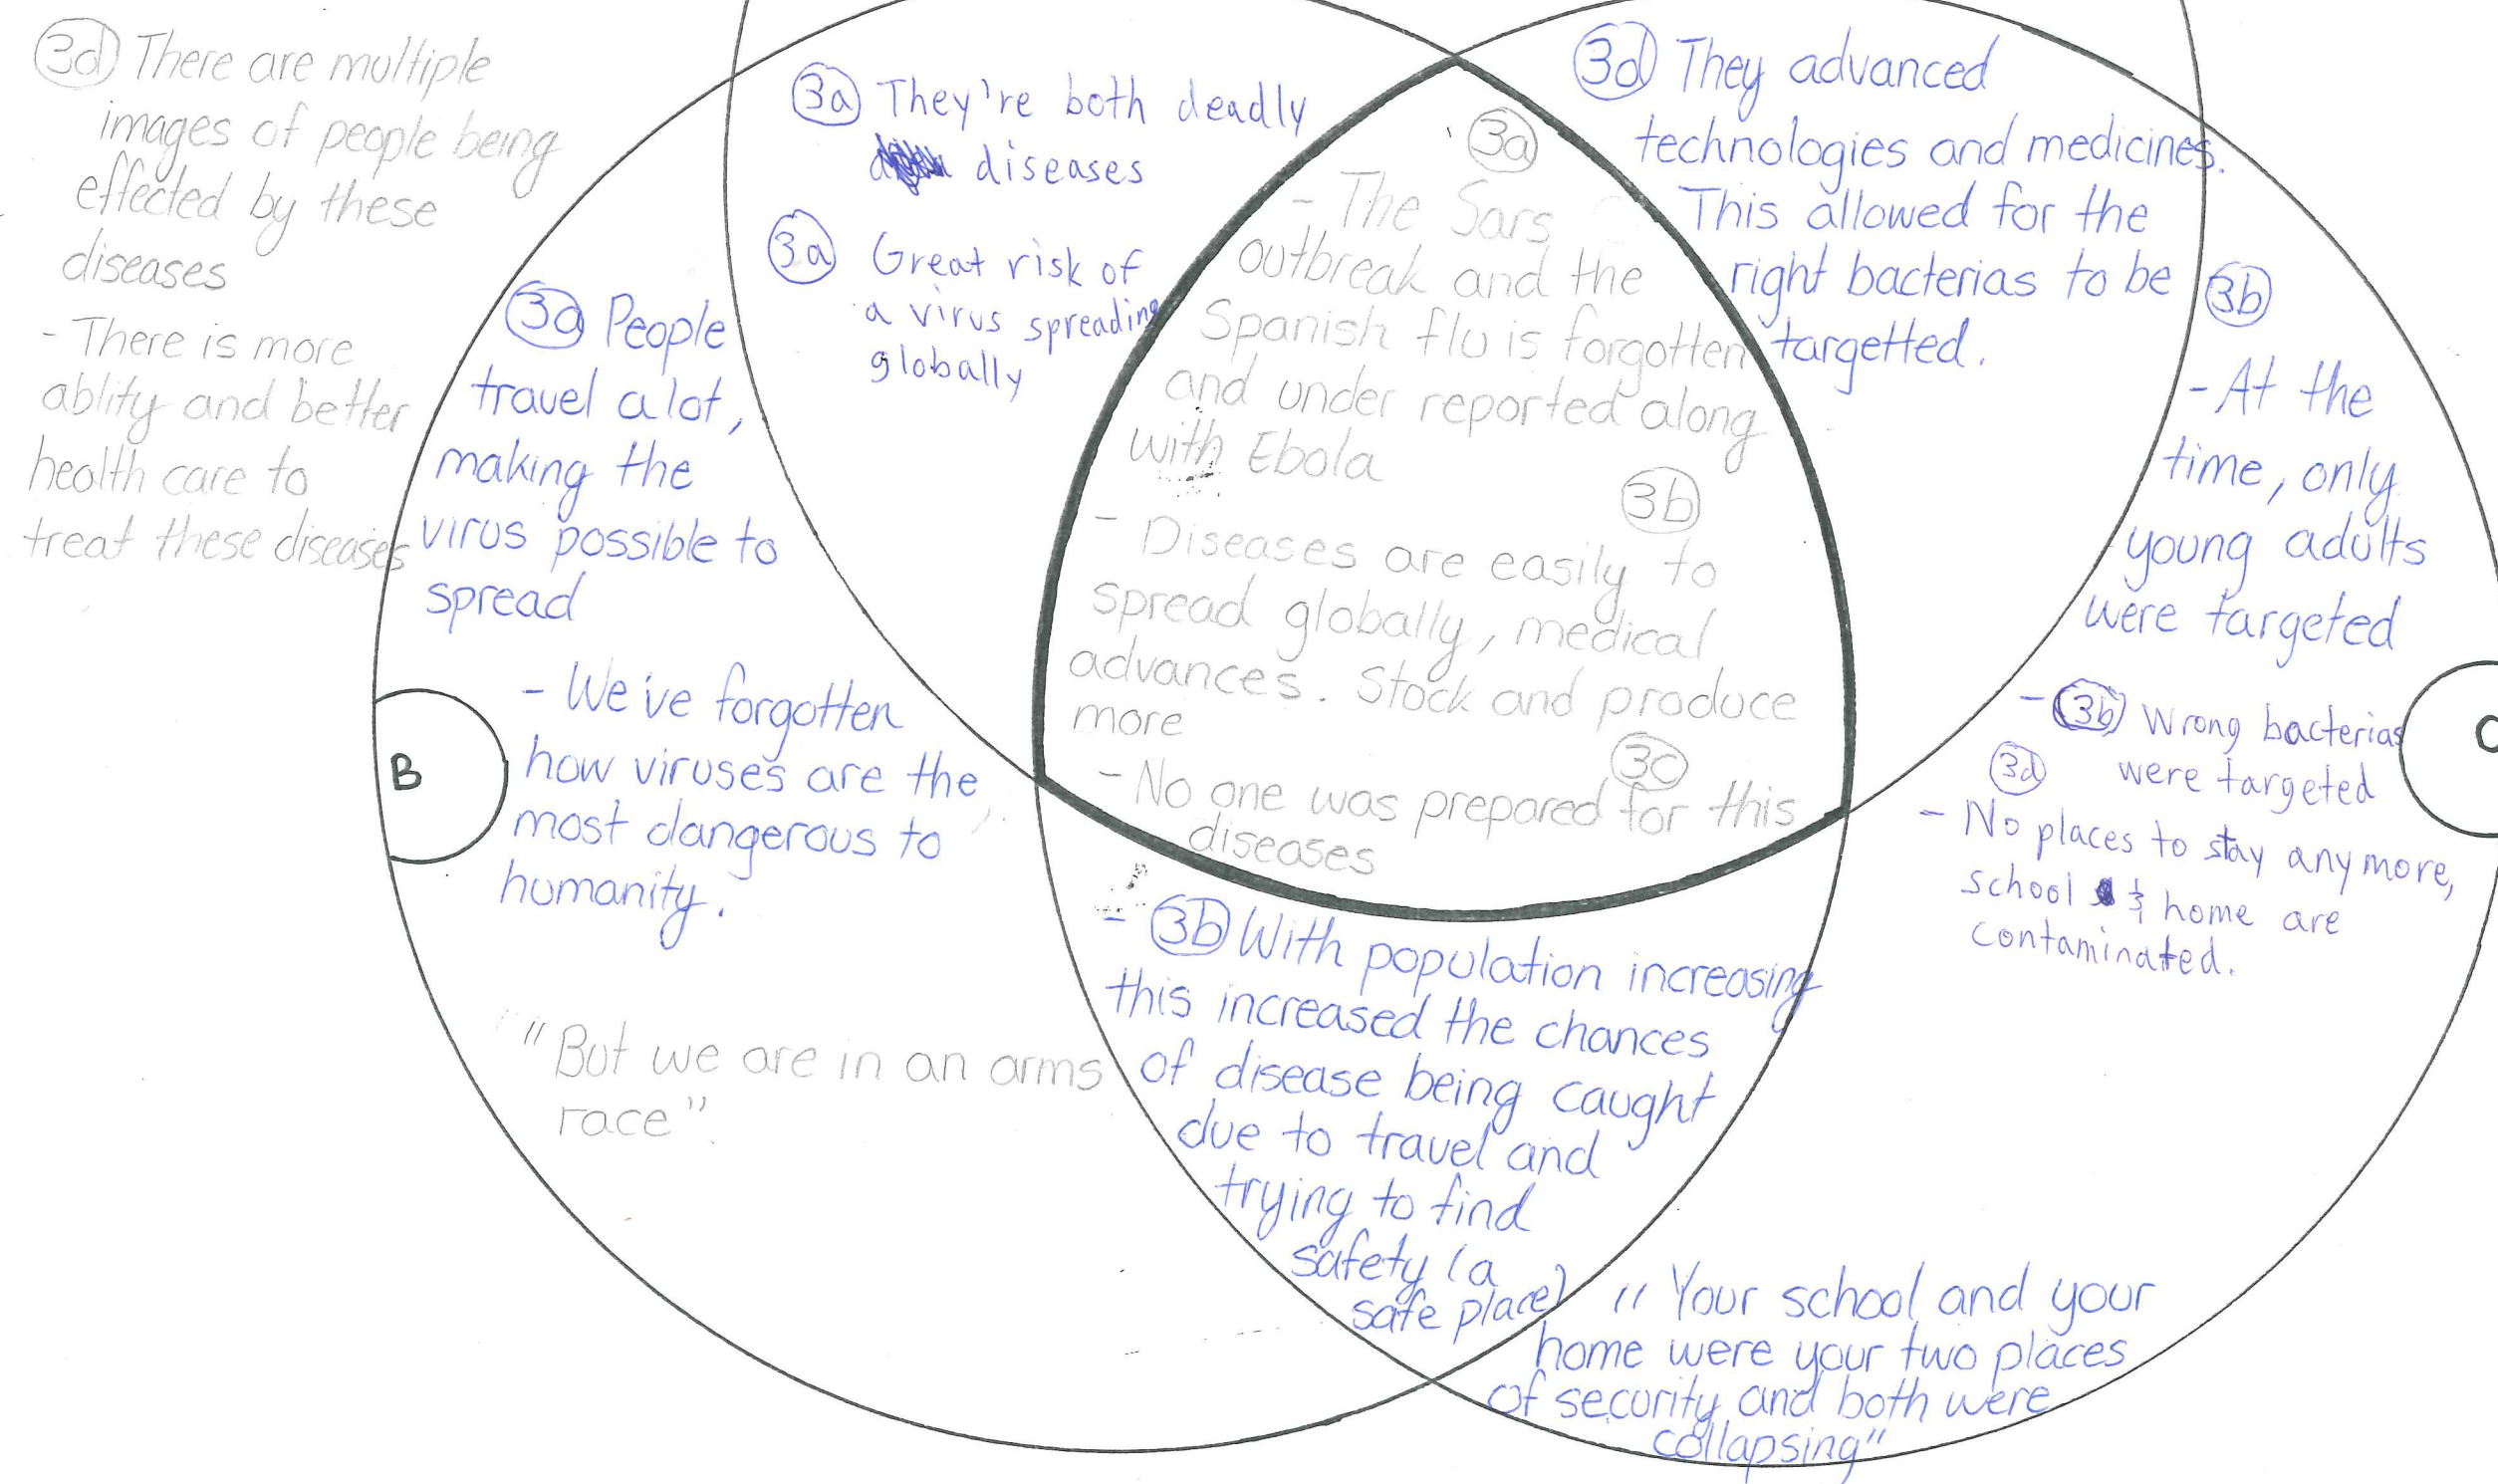 3d There are multiple
images of people being
effected by these
diseases
- There is more
ablity and better
health care to
treat these diseases
3a They're both deadly
diseases
3a Great risk of
a virus spreading
globally
3d They advanced
technologies and medicines.
This allowed for the
right bacterias to be
targetted.
3a People
travel alot,
making the
virus possible to
spread
- We've forgotten
how viruses are the
most dangerous to
humanity.
B
"But we are in an arms
race".
3a
- The Sars
outbreak and the
Spanish flu is forgotten
and under reported along
with Ebola
3b
- Diseases are easily to
spread globally, medical
advances. Stock and produce
more
3c
- No one was prepared for this
diseases
3b
- At the
time, only
young adults
were targeted
- 3b Wrong bacterias
were targeted
3d
- No places to stay anymore,
school & home are
contaminated.
C
- 3b With population increasing
this increased the chances
of disease being caught
due to travel and
trying to find
safety (a
safe place)
"Your school and your
home were your two places
of security and both were
collapsing"